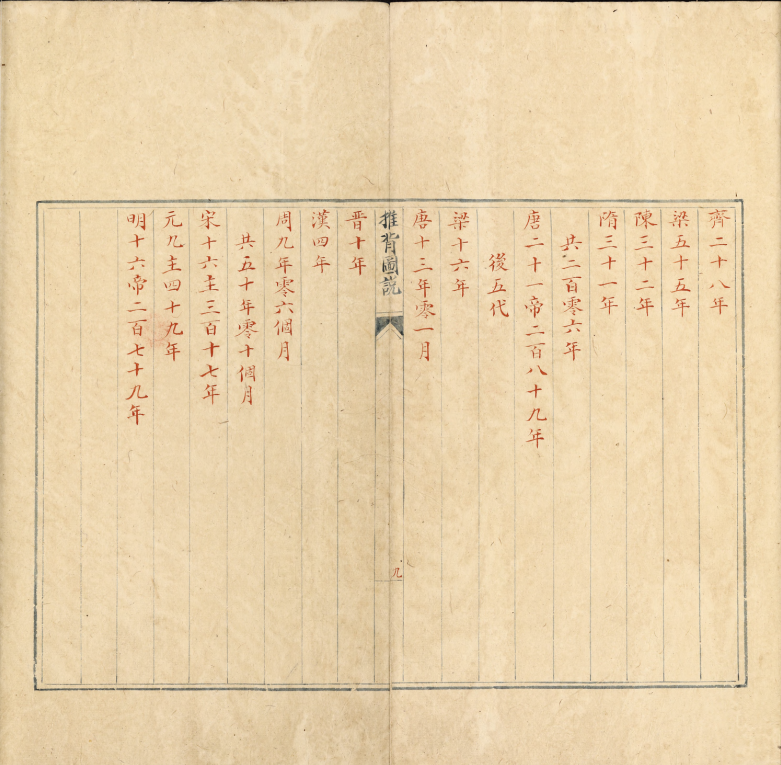 齊二十八年
梁五十五年
陳三十二年
隋三十一年
共二百零六年
唐二十一帝二百八十九年
後五代
梁十六年
唐十三年零一月
推背圖説
九
晋十年
漢四年
周九年零六個月
共五十年零十個月
宋十六主三百十七年
元九主四十九年
明十六帝二百七十九年